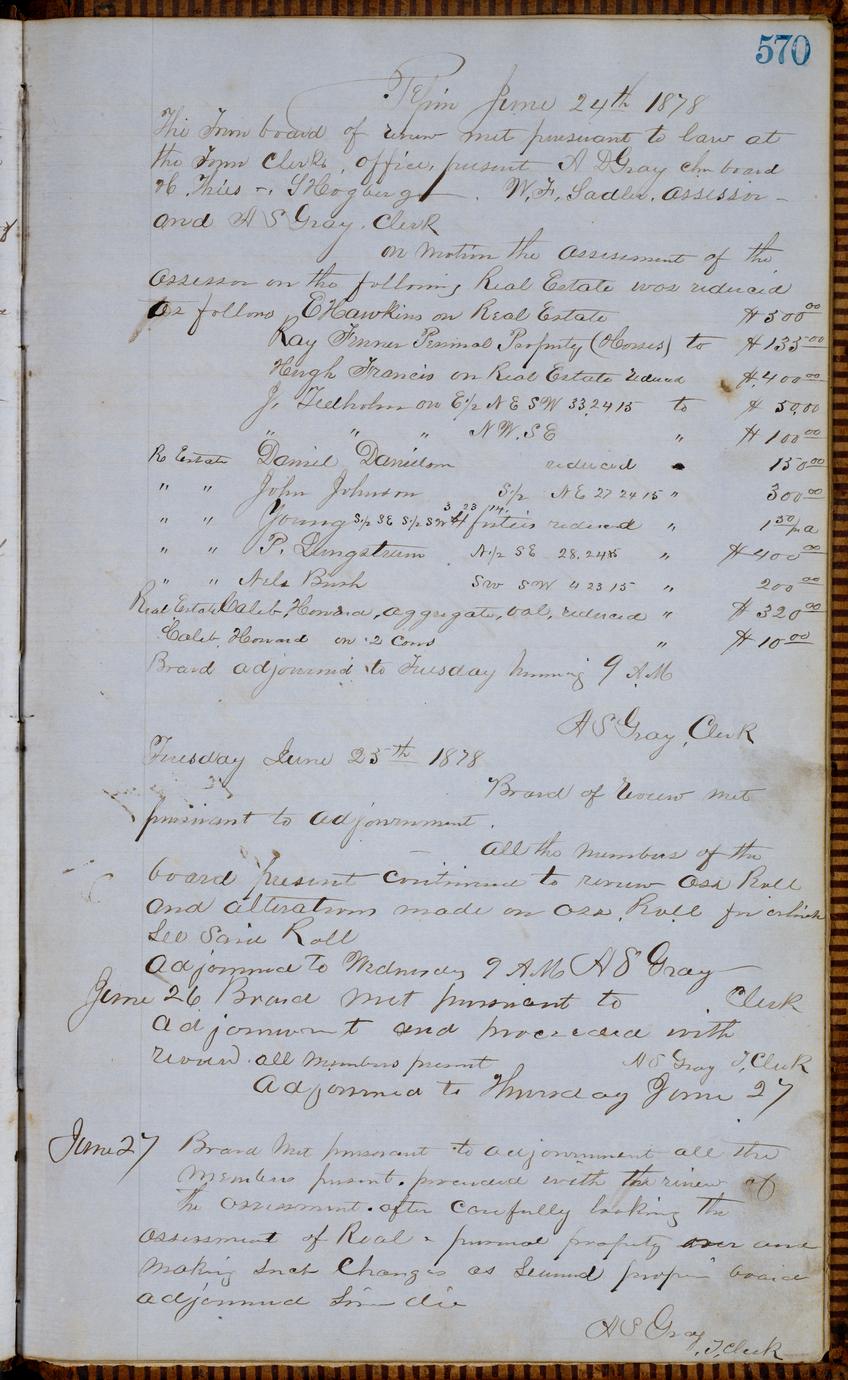 570
Pepin June 24th 1878
The Town board of review met pursuant to law at
the Town Clerks, office, present A D Gray chm board
H. Thies - S Hogberg . W. F. Sadler. assessor -
and A S Gray. Clerk
on motion the assessment of the
assessor on the following Real Estate was reduced
as follows E Hawkins on Real Estate $ 500 00
Ray Personal Property (Horses) to $ 133 00
Hugh Francis on Real Estate reduced $ 400 00
J. Tedholm on E½ N E S W 33,24 15 to $ 50,00
" " " N W. S E " $ 100 00
R Estate Daniel Danielson reduced 150 00
" " John Johnson S½ N E 27 24 15 " 300 00
" " Young S½ S E S½ S W reduced "
" " P. Lungstrum N½ S E 28. 24 15 " $ 400 00
" " Nels Bush S W S W 4 23 15 " 200 00
Real Estate Caleb, Howard, aggregate, val, reduced " $ 320 00
Caleb, Howard on 2 Cows " $ 10 00
Board adjourned to Tuesday morning 9 A M
A S Gray, Clerk
Tuesday June 25th 1878
Board of review met
pursuant to adjournment.
All the members of the
board present continued to review Ass Roll
and alterations made on Ass, Roll for which
See Said Roll
adjourned to Wednesday 9 A M A S Gray
June 26 Board met pursuant to Clerk
adjournment and proceeded with
review. all members present A S Gray T, Clerk
adjourned to Thursday June 27
June 27 Board met pursuant to adjournment all the
members present. proceeded with the review of
the assessment. after carefully looking the
assessment of Real & personal property over and
making such Changes as seemed proper board
adjourned Sine die
A S Gray
, T, Clerk